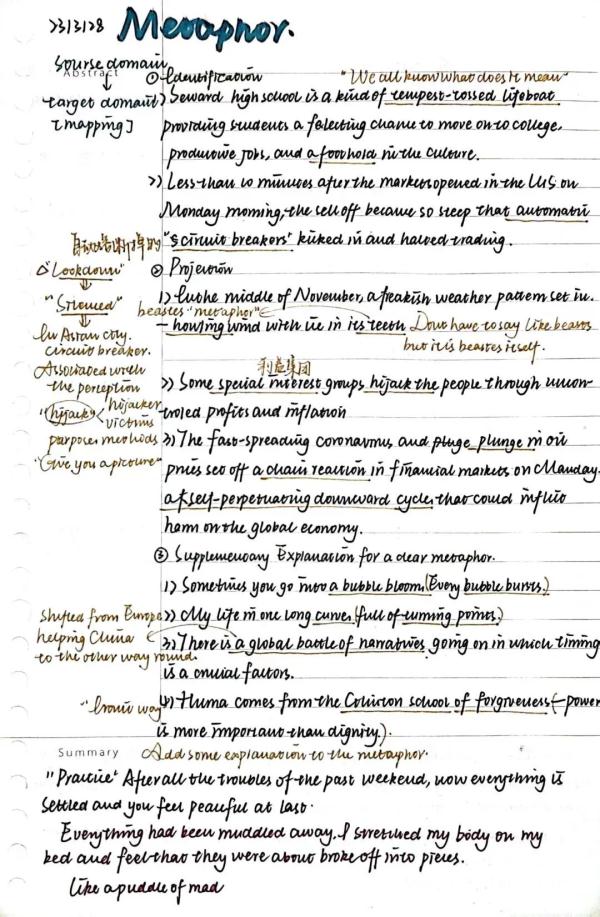 23/3/28 Metaphor.
sourse domain
↓
target domain
[mapping]
Abstract
① Identification "We all know what does it mean"
1) Seward high school is a kind of tempest-tossed lifeboat
providing students a fleeting chance to move on to college,
produtive jobs, and a foothold in the culture.
2) Less than 10 minutes after the markets opened in the U.S on
Monday morning, the sell off became so steep that automatic
"circuit breakers" kicked in and halved trading.
△"Lockdown"
⇓
"Storied"
⇓
In Asian city.
circuit breaker.
Associated with
the perception
"hijack" < hijacker
victims
purposes methods
"Give you a picture"
② Projection
1) In the middle of November, a freakish weather pattern set in.
beastes "metaphor"
— howling wind with ice in its teeth Dont have to say like beasts
but it is beastes itself.
利益集团
2) Some special interest groups hijack the people through uncon-
troled profits and inflation
3) The fast-spreading coronavirus and pluge plunge in oil
pries set off a chain reaction in financial markets on Manday.
a self-perpetuating downward cycle that could inflic
harm on the global economy.
③ Supplementary Explanation for a dear metaphor.
1) Sometimes you go into a bubble bloom (Every bubble bursts.)
2) My life in one long curve, (full of turning points.)
3) There is a global battle of narratives, going on in which timing
is a crucial factors.
shifted from Europe
helping China
to the other way round.
"Ironic way"
4) Huma comes from the Colinton school of forgiveness (—power
is more important than dignity.).
Summary Add some explanation to the metaphor.
"Practice" After all the troubles of the past weekend, now everything is
settled and you feel peaceful at last.
Everything had been muddled away. I stretched my body on my
bed and feel that they were about broke off into pieces.
like a puddle of mad